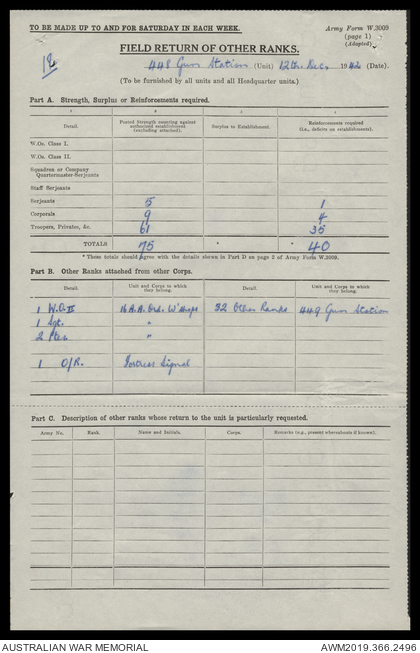 TO BE MADE UP TO AND FOR SATURDAY IN EACH WEEK.
Army Form W.3009
(page 1)
(Adapted)
FIELD RETURN OF OTHER RANKS.
448 Gun Station (Unit) 12th Dec. 1942 (Date).
(To be furnished by all units and all Headquarter units.)
Part A. Strength, Surplus or Reinforcements required.
Detail. Posted Strength counting against authorized establishment (excluding attached). Surplus to Establishment. Reinforcements required (i.e., deficits on establishments).
W.Os. Class I.
W.Os. Class II.
Squadron or Company Quartermaster-Serjeants
Staff Serjeants
Serjeants 5 1
Corporals 9 4
Troopers, Privates, &c. 61 35
TOTALS 75 * * 40
* These totals should agree with the details shown in Part D on page 2 of Army Form W.3009.
Part B. Other Ranks attached from other Corps.
Detail. Unit and Corps to which they belong. Detail. Unit and Corps to which they belong.
1 W.O.II 16 A.A. Ord. W'shops 32 Other Ranks 449 Gun Station
1 Sgt. "
2 Ptes. "
1 O/R. Fortress Signal
Part C. Description of other ranks whose return to the unit is particularly requested.
Army No. Rank. Name and Initials. Corps. Remarks (e.g., present whereabouts if known).
AUSTRALIAN WAR MEMORIAL
AWM2019.366.2496